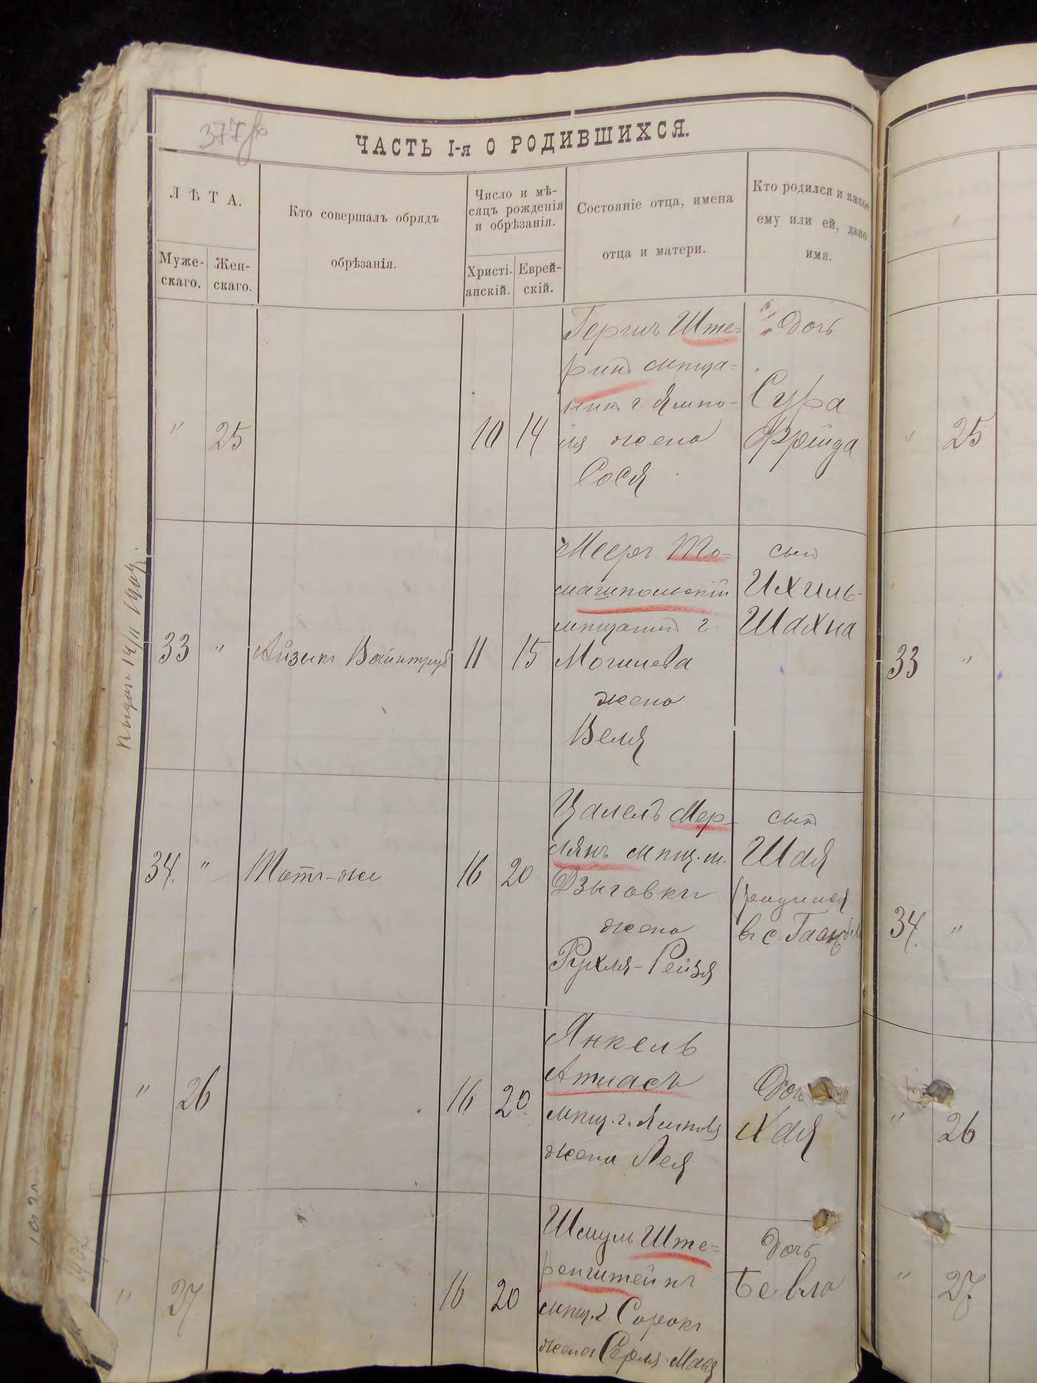 ЧАСТЬ I-я О РОДИВШИХСЯ.
ЛѢТА.
Муже-
скаго.
Жен-
скаго.
Кто совершалъ обрядъ
обрѣзанія.
Число и мѣ-
сяцъ рожденія
и обрѣзанія.
Христі-
анскій.
Еврей-
скій.
Состояніе отца, имена
отца и матери.
Кто родился и какое
ему или ей, дано
имя.
" 25
10 14
Гершъ Ште-
ринъ мѣща-
нинъ г. Ямпо-
ля жена
Сося
Дочь
Сура
Фрейда
" 25
33 "
Айзыкъ Вайнтрубъ
11 15
Мееръ То-
машпольскій
мѣщанинъ г.
Могилева
жена
Веля
сынъ
Ихиль-
Шахна
33 "
34. "
Тотъ-же
16 20
Цалель Мер-
лянъ мѣщ. м.
Дзыговки
жена
Рухля-Рейзя
сынъ
Шая
въ с.
34. "
" 26
16 20.
Янкель
Атласъ
мѣщ. г. Ямполя
жена Лея
Дочь
Хая
" 26
" 27
16 20
Шмуль Ште-
ренштейнъ
мѣщ. г. Сорокъ
жена
дочь
Бейла
" 27